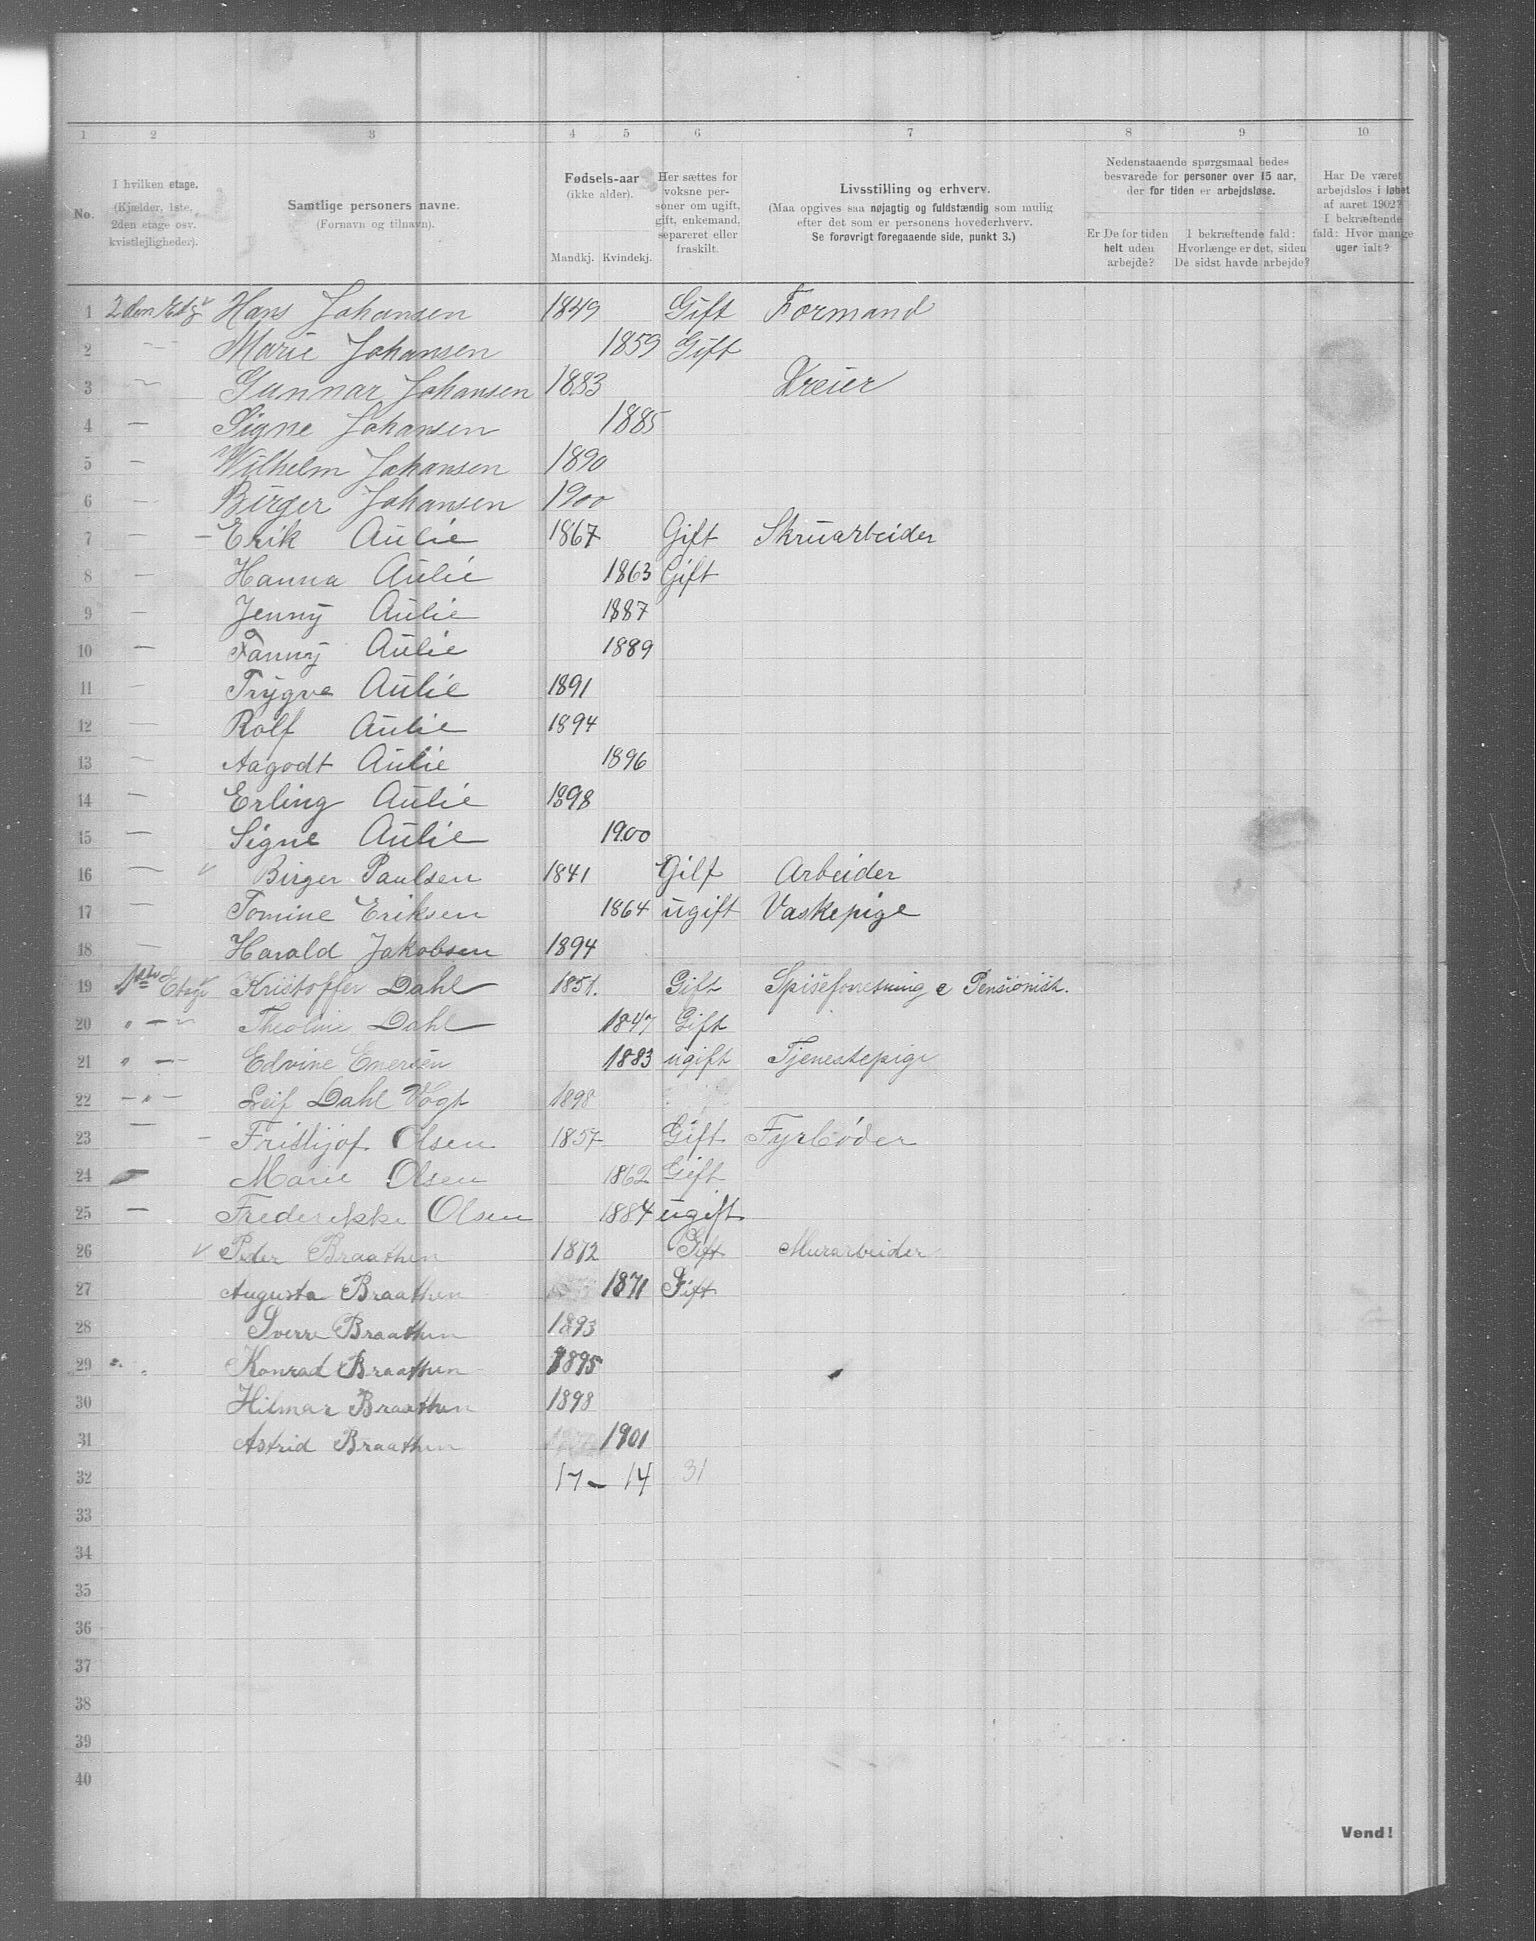 1 2 3 4 5 6 7 8 9 10
No.
I hvilken etage.
(Kjælder, 1ste,
2den etage osv.
kvistlejligheder).
Samtlige personers navne.
(Fornavn og tilnavn).
Fødsels-aar
(ikke alder).
Mandkj. Kvindekj.
Her sættes for
voksne per-
soner om ugift,
gift, enkemand,
separeret eller
fraskilt.
Livsstilling og erhverv.
(Maa opgives saa nøjagtig og fuldstændig som mulig
efter det som er personens hovederhverv.
Se forøvrigt foregaaende side, punkt 3.)
Nedenstaaende spørgsmaal bedes
besvarede for personer over 15 aar,
der for tiden er arbejdsløse.
Er De for tiden
helt uden
arbejde?
I bekræftende fald:
Hvorlænge er det, siden
De sidst havde arbejde?
Har De været
arbejdsløs i løbet
af aaret 1902?
I bekræftende
fald: Hvor mange
uger ialt?
1 2den Etg Hans Johansen 1849 Gift Formand
2 — Marie Johansen 1859 Gift
3 — Gunnar Johansen 1883 Dreier
4 — Signe Johansen 1885
5 — Wilhelm Johansen 1890
6 — Birger Johansen 1900
7 — Erik Aulie 1867 Gift Skruarbeider
8 — Hanna Aulie 1863 Gift
9 — Jenny Aulie 1887
10 — Fanny Aulie 1889
11 — Trygve Aulie 1891
12 — Rolf Aulie 1894
13 — Aagodt Aulie 1896
14 — Erling Aulie 1898
15 — Signe Aulie 1900
16 — Birger Paulsen 1841 Gift Arbeider
17 — Tomine Eriksen 1864 ugift Vaskepige
18 — Harald Jakobsen 1894
19 1ste Etage Kristoffer Dahl 1851. Gift Spiseforretning e Pensionist.
20 " — Theoline Dahl 1847 Gift
21 " — Edvine Enersen 1883 ugift Tjenestepige
22 — " — Leif Dahl Vogt 1898
23 — Frithjof Olsen 1857 Gift Fyrbøder
24 — Marie Olsen 1862 Gift
25 — Frederikke Olsen 1884 ugift
26 Peder Braathen 1872 Gift Murarbeider
27 Augusta Braathen 1871 Gift
28 Sverre Braathen 1893
29 Konrad Braathen 1895
30 Hilmar Braathen 1898
31 Astrid Braathen 1901
32 17 – 14 31
33
34
35
36
37
38
39
40
Vend!